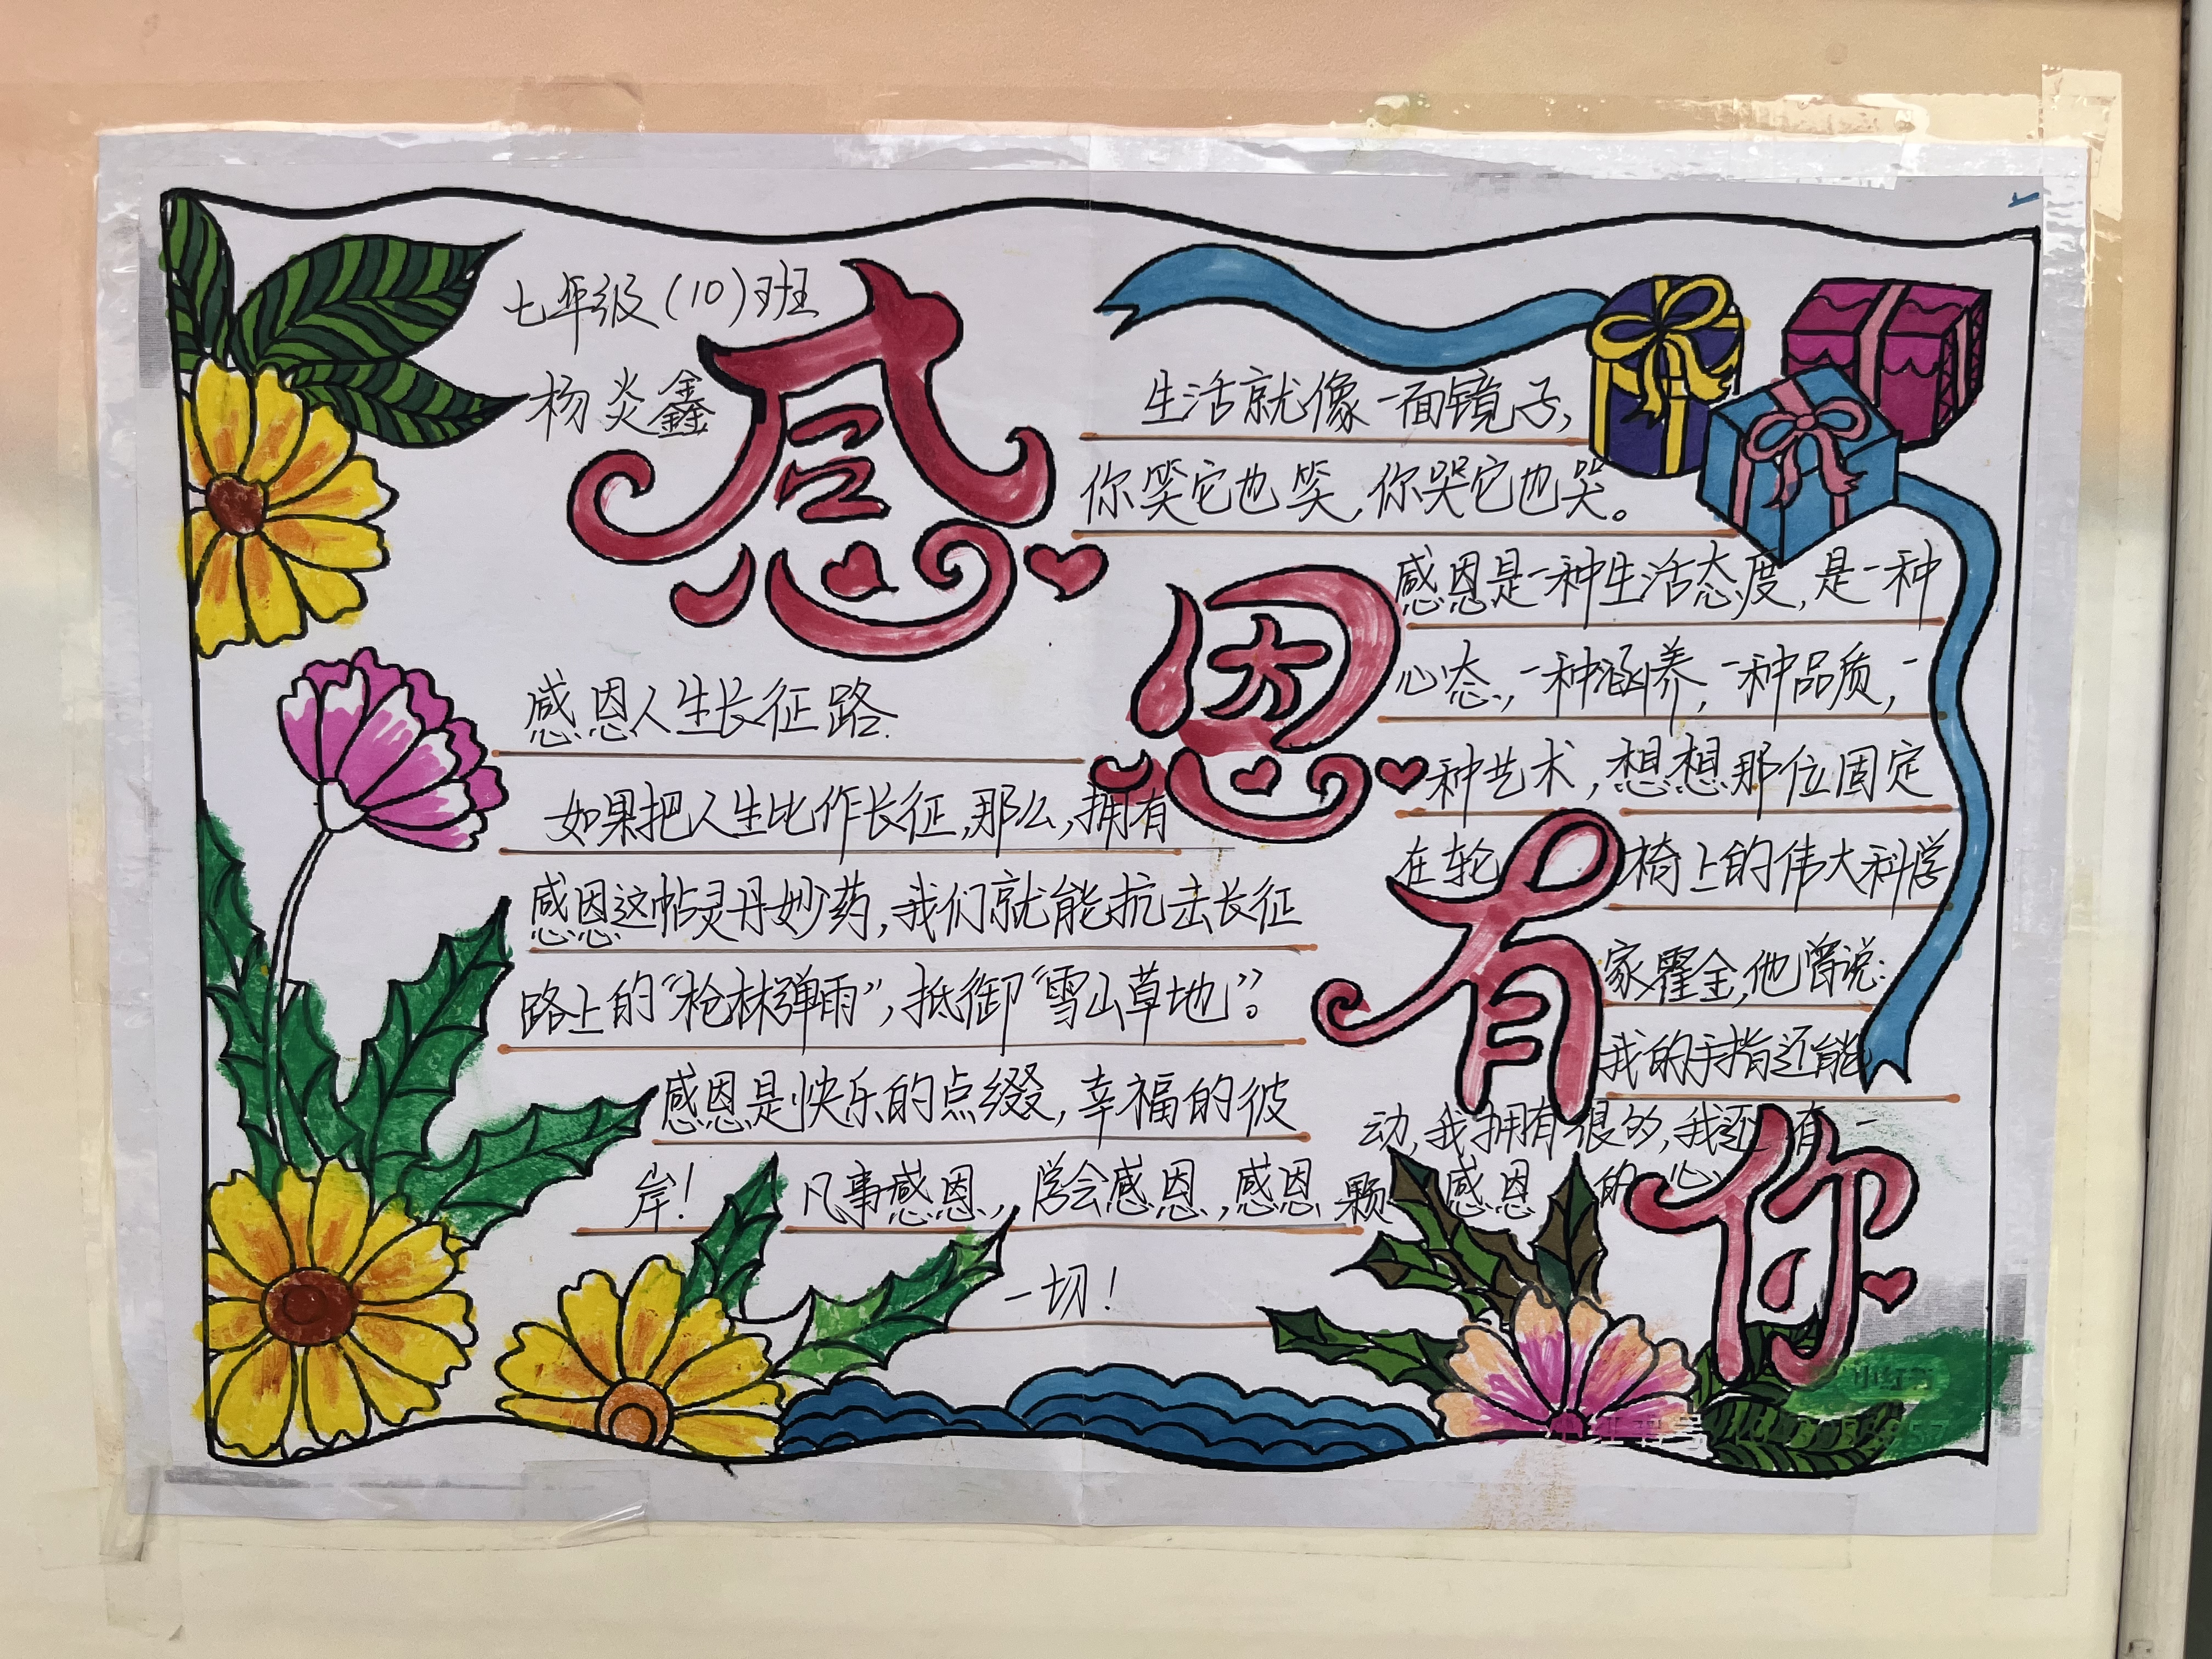 七年级(10)班
杨炎鑫
感恩有你
感恩人生长征路.
如果把人生比作长征,那么,拥有
感恩这帖灵丹妙药,我们就能抗击长征
路上的“枪林弹雨”,抵御“雪山草地”。
感恩是快乐的点缀,幸福的彼
岸! 凡事感恩,学会感恩,感恩
一切!
生活就像一面镜子,
你笑它也笑,你哭它也哭。
感恩是一种生活态度,是一种
心态,一种涵养,一种品质,一
种艺术,想想那位固定
在轮椅上的伟大科学
家霍金,他曾说:
我的手指还能
动,我拥有很多,我还有一
颗感恩的心